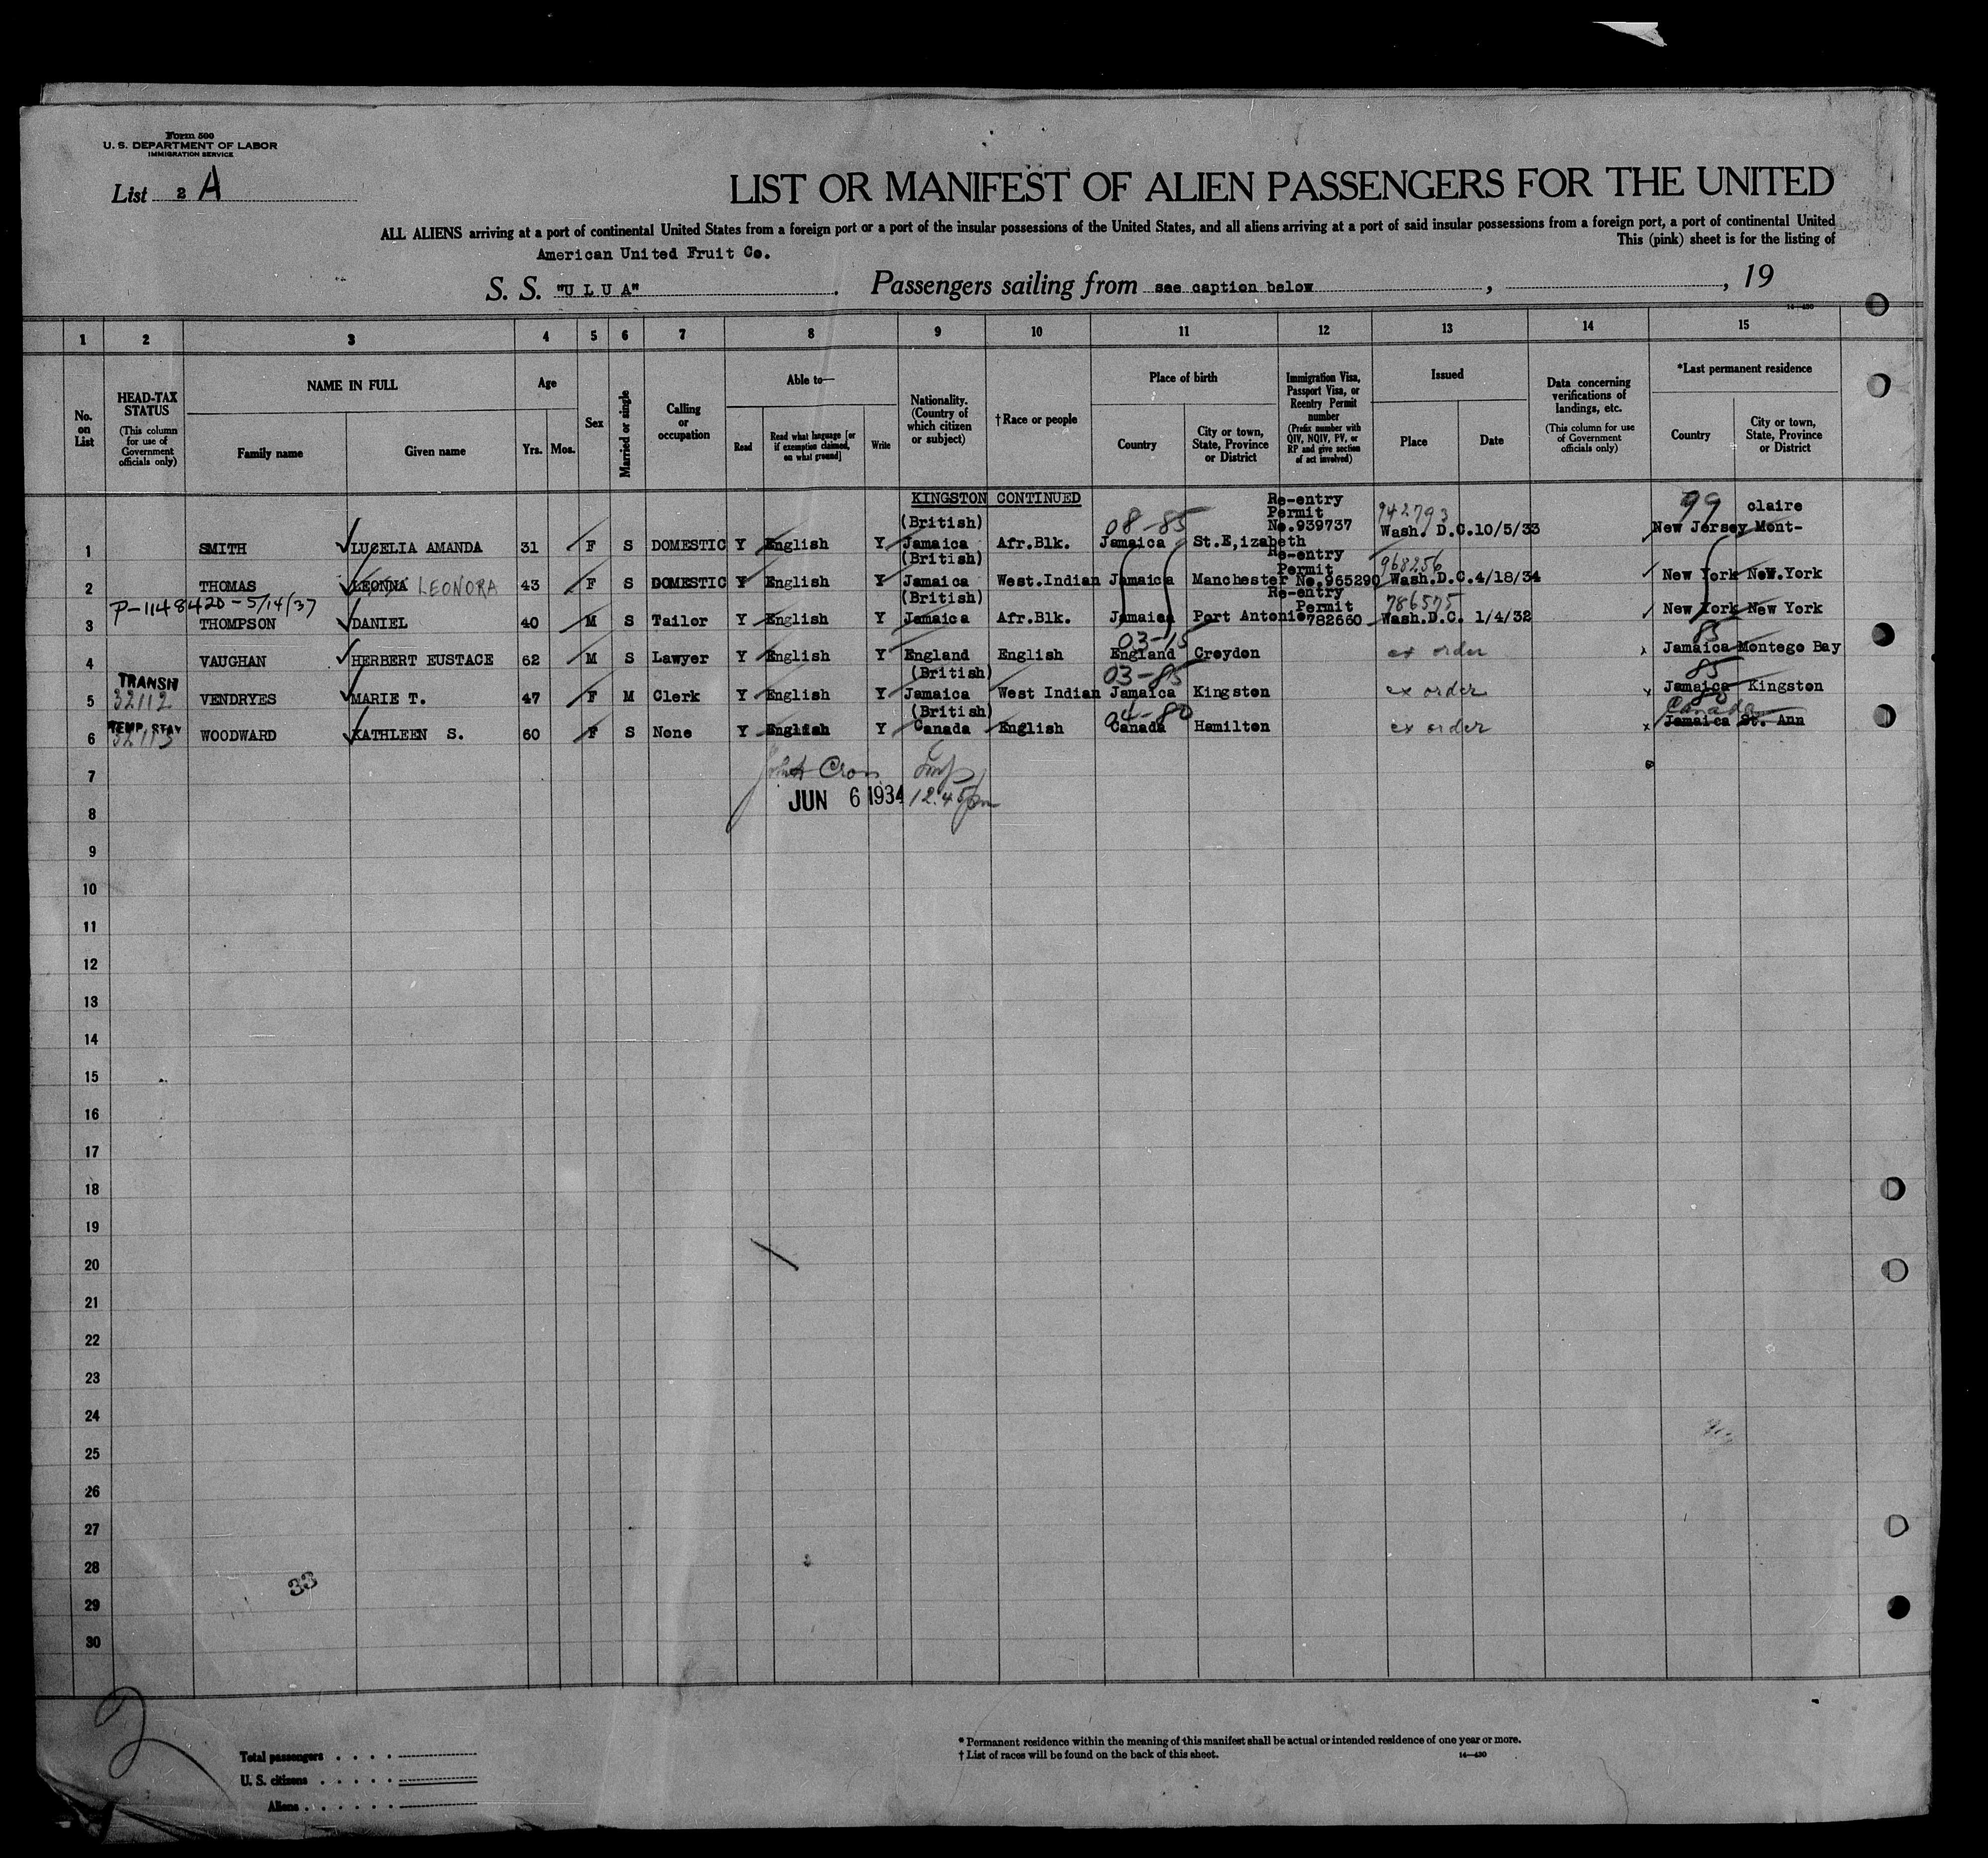 Form 500
U. S. DEPARTMENT OF LABOR
IMMIGRATION SERVICE
List 2 A
LIST OR MANIFEST OF ALIEN PASSENGERS FOR THE UNITED
ALL ALIENS arriving at a port of continental United States from a foreign port or a port of the insular possessions of the United States, and all aliens arriving at a port of said insular possessions from a foreign port, a port of continental United
This (pink) sheet is for the listing of
American United Fruit Co.
S. S. "U L U A" Passengers sailing from see caption below , , 19
14—430
1 2 3 4 5 6 7 8 9 10 11 12 13 14 15
No. on List
HEAD-TAX STATUS
(This column for use of Government officials only)
NAME IN FULL
Family name Given name
Age
Yrs. Mos.
Sex
Married or single
Calling or occupation
Able to—
Read Read what language [or if exemption claimed, on what ground] Write
Nationality. (Country of which citizen or subject)
†Race or people
Place of birth
Country City or town, State, Province or District
Immigration Visa, Passport Visa, or Reentry Permit number
(Prefix number with QIV, NQIV, PV, or RP and give section of act involved)
Issued
Place Date
Data concerning verifications of landings, etc.
(This column for use of Government officials only)
*Last permanent residence
Country City or town, State, Province or District
KINGSTON CONTINUED
Re-entry 99 claire
(British) 08-85 Permit 942793
No.939737
1 SMITH LUCELIA AMANDA 31 F S DOMESTIC Y English Y Jamaica Afr.Blk. Jamaica St.E,izabeth Wash. D.C. 10/5/33 New Jersey Mont-
(British) Re-entry
Permit 968256
2 THOMAS LEONNA LEONORA 43 F S DOMESTIC Y English Y Jamaica West.Indian Jamaica Manchester No.965290 Wash.D.C. 4/18/34 New York New.York
P-1148420-5/14/37 (British) Re-entry
Permit 786575
3 THOMPSON DANIEL 40 M S Tailor Y English Y Jamaica Afr.Blk. Jamaica Port Antonio 782660 Wash.D.C. 1/4/32 New York New York
03-15 85
4 VAUGHAN HERBERT EUSTACE 62 M S Lawyer Y English Y England English England Croydon ex order x Jamaica Montego Bay
TRANSIT (British) 03-85 85
5 32112 VENDRYES MARIE T. 47 F M Clerk Y English Y Jamaica West Indian Jamaica Kingston ex order x Jamaica Kingston
TEMP. STAY (British) 04-80 80 Canada
6 32113 WOODWARD KATHLEEN S. 60 F S None Y English Y Canada English Canada Hamilton ex order x Jamaica St. Ann
7
JUN 6 1934 12:45pm
8
9
10
11
12
13
14
15
16
17
18
19
20
21
22
23
24
25
26
27
28
33
29
30
2
Total passengers
U. S. citizens
Aliens
* Permanent residence within the meaning of this manifest shall be actual or intended residence of one year or more.
† List of races will be found on the back of this sheet. 14—430